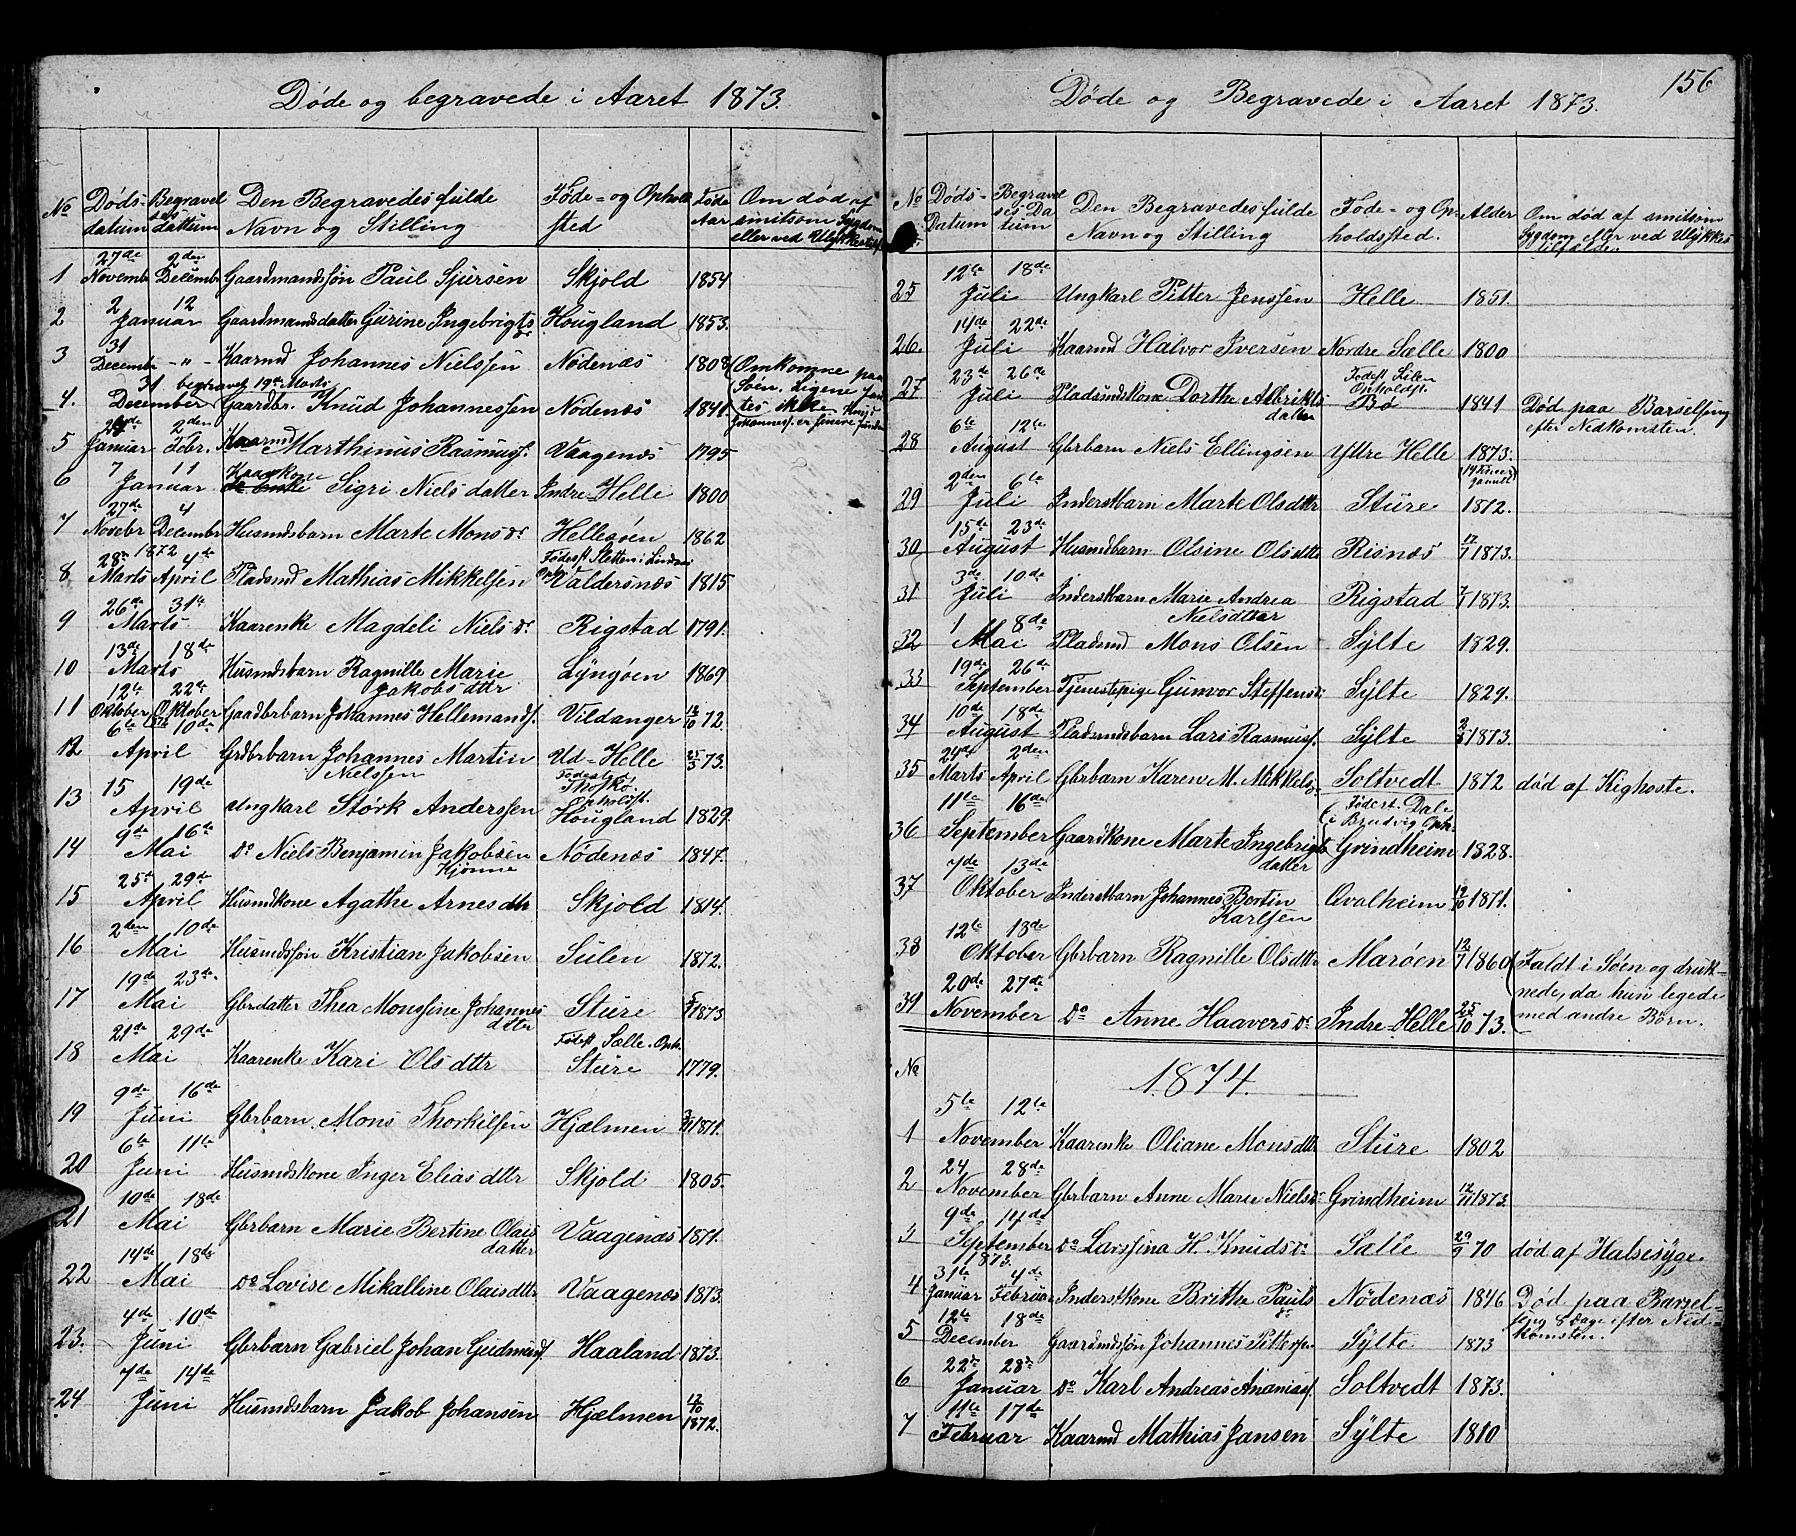 Døde og begravede i Aaret 1873.
No Døds-datum Begravelsesdattum Den Begravedes fulde Navn og Stilling Føde- og Opholdsted Føde Aar Om død af smitsom Sygdom eller ved Ulykkestilf.
1 27de Novembr 2den Decembr Gaardmandssøn Paul Sjursen Skjold 1854
2 2 Januar 12 Gaardmandsdatter Gurine Ingebrigtsdr Hougland 1853.
3 31 Decembr -"- Kaarmd Johannes Nielssen Nødenæs 1808 (Omkomne paa
4. 31 December begravet 19de Marts Gaardbr. Knud Johannessen Nødenæs 1841 Søen. Ligene fandtes ikke Knud Johannesf. er senere funden
5 Januar 2den Febr. Kaarmd Marthinus Rasmusf. Vaagenæs 1795
6 7 Januar 11 Kaarkone Sigri Nielsdatter Indre-Helle 1800
7 27de Novebr 4 Decembr Husmdsbarn Marte Monsdr Hellesøen 1862
8 28de 1872 Marts 4de April Pladsmd Mathias Mikkelsen Fødest Sletten i Lindaas Oph. Valdersnæs 1815
9 26de Marts 31te Kaarenke Magdeli Nielsdr. Rigstad 1791.
10 13de Marts 18de Husmdsbarn Ragnille Marie Jakobsdttr Lyngøen 1869
11 12te Oktober 22de Oktober Gaadbrbarn Johannes Hellemandsf. Vildanger 12/10 72.
12 6te April 10de Grdbrbarn Johannes Martin Nielssen Ud-Helle 25/3 73.
13 15 April 19de Ungkarl Størk Anderssen Fødest Opholdst. Hougland 1829.
14 9de Mai 16de Do Niels Benjamin Jakobsen Nødenæs 1847.
15 25d April 29de Husmdkone Agathe Arnesdtr Skjold 1814.
16 2den Mai 10de Husmdssøn Kristian Jakobsen Sulen 1872.
17 19de Mai 23de Gbrdatter Thea Monssine Johannesdtter Sture 1873
18 21de Mai 29de Kaarenke Kari Olsdttr Fødest Sælle. Oph. Sture 1779.
19 9de Juni 16de Gbrbarn. Mons Thorkilsen Hjælmen 1871.
20 6te Juni 11te Husmdskone Inger Eliasdttr Skjold 1805.
21 10de Mai 18de Gbrbarn Marie Bertine Olaisdatter Vaagenæs 1871.
22 14de Mai 18de Do Lovise Mikalline Olaisdttr Vaagenæs 1873.
23. 4de Juni 10de Gbrbarn Gabriel Johan Gudmundf. Haaland 1873.
24 7de Juni 14de Husmdsbarn Jakob Johansen Hjælmen 1872.
156
Døde og Begravede i Aaret 1873.
No Døds-Datum Begravelses-Datum Den Begravedes fulde Navn og Stilling Føde- og Opholdssted. Alder Om død af smitsom Sygdom eller ved Ulykkestilfælde.
25 12te Juli 18de Ungkarl Pitter Jenssen Helle 1851.
26. 14de Juli 22de Kaarmd Halvor Iversen Nordre Sælle 1800
27 23de Juli 26de Pladsmdskone Dorthe Albriktsdatter Fødest Opholdst. Bø 1841 Død paa Barselseng efter Nedkomsten.
28 6te August 12te Gbrbarn Niels Ellingsen Yttre Helle 1873.
29 2den Juli 6te Inderstbarn Marte Olsdttr Sture 1872.
30 15de August 23de Husmdbarn Olsine Olsdttr Risnæs 1873.
31 3de Juli 10de Inderstbarn Marie Andrea Nielsdtter Rigstad 1873.
32 1 Mai 8de Pladsmd Mons Olsen Sylte 1829.
33 19de September 26de Tjenestepige Gunvor Steffensdr Sylte 1829.
34 10de August 18de Pladsmdsbarn Lars Rasmusf. Sylte 1873.
35 24de Marts 2den April Gbrbarn Karen M. Mikkelsdr Soltvedt 1872 død af Kighoste.
36 11te September 16de Gaardkone Marte Ingebrigtsdatter (Fødest. Dale i Brudvig Oph. Grindheim 1828.
37 7de Oktober 13de Inderstbarn Johannes Bertin Karlsen Qvalheim 12/10 1871.
38 12te Oktober 18de Gbrbarn Ragnille Olsdttr Marøen 12/7 1860 (Faldt i Søen og druknede, da hun legede med andre Børn.
39 20de November 27de Do Anne Haaversdr Indre-Helle 25/10 73.
No 1874.
1 5te November 12te Kaarenke Oliane Monsdttr Sture 1802
2 24 November 28de Gbrbarn Anne Marie Nielsdr Grindheim 12/11 1873.
3 9de September 14de Do Larssina H. Knudsdr Sælle 29/9 70 død af Halsesyge.
4 1873. 31te Januar 4de Februar Inderstkone Brithe Paulsdr Nødenæs 1846 Død paa Barselseng 8 Dage efter Nedkomsten.
5 12te December 18de Gaardmdssøn Johannes Pittersen Sylte 1873
6 22de Januar 28de Do Karl Andreas Ananiasf. Soltvedt 1873.
7 11te Februar 17de Kaarmd Mathias Jansen Sylte 1810